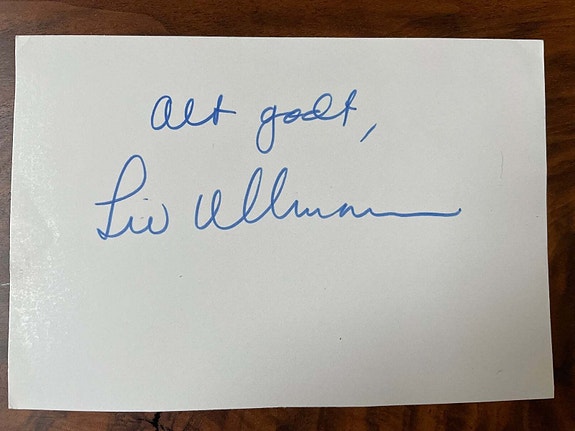 Alt godt,
Liv Ullmann